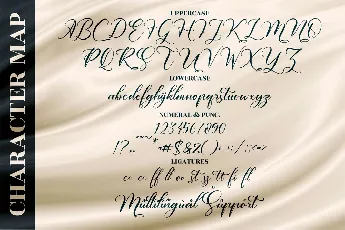 CHARACTER MAP
UPPERCASE
ABCDEFGHIJKLMNO
PQRSTUVWXYZ
LOWERCASE
abcdefghijklmnopqrstuvwxyz
NUMERAL & PUNC.
1234567890
LIGATURES
Multilingual Support